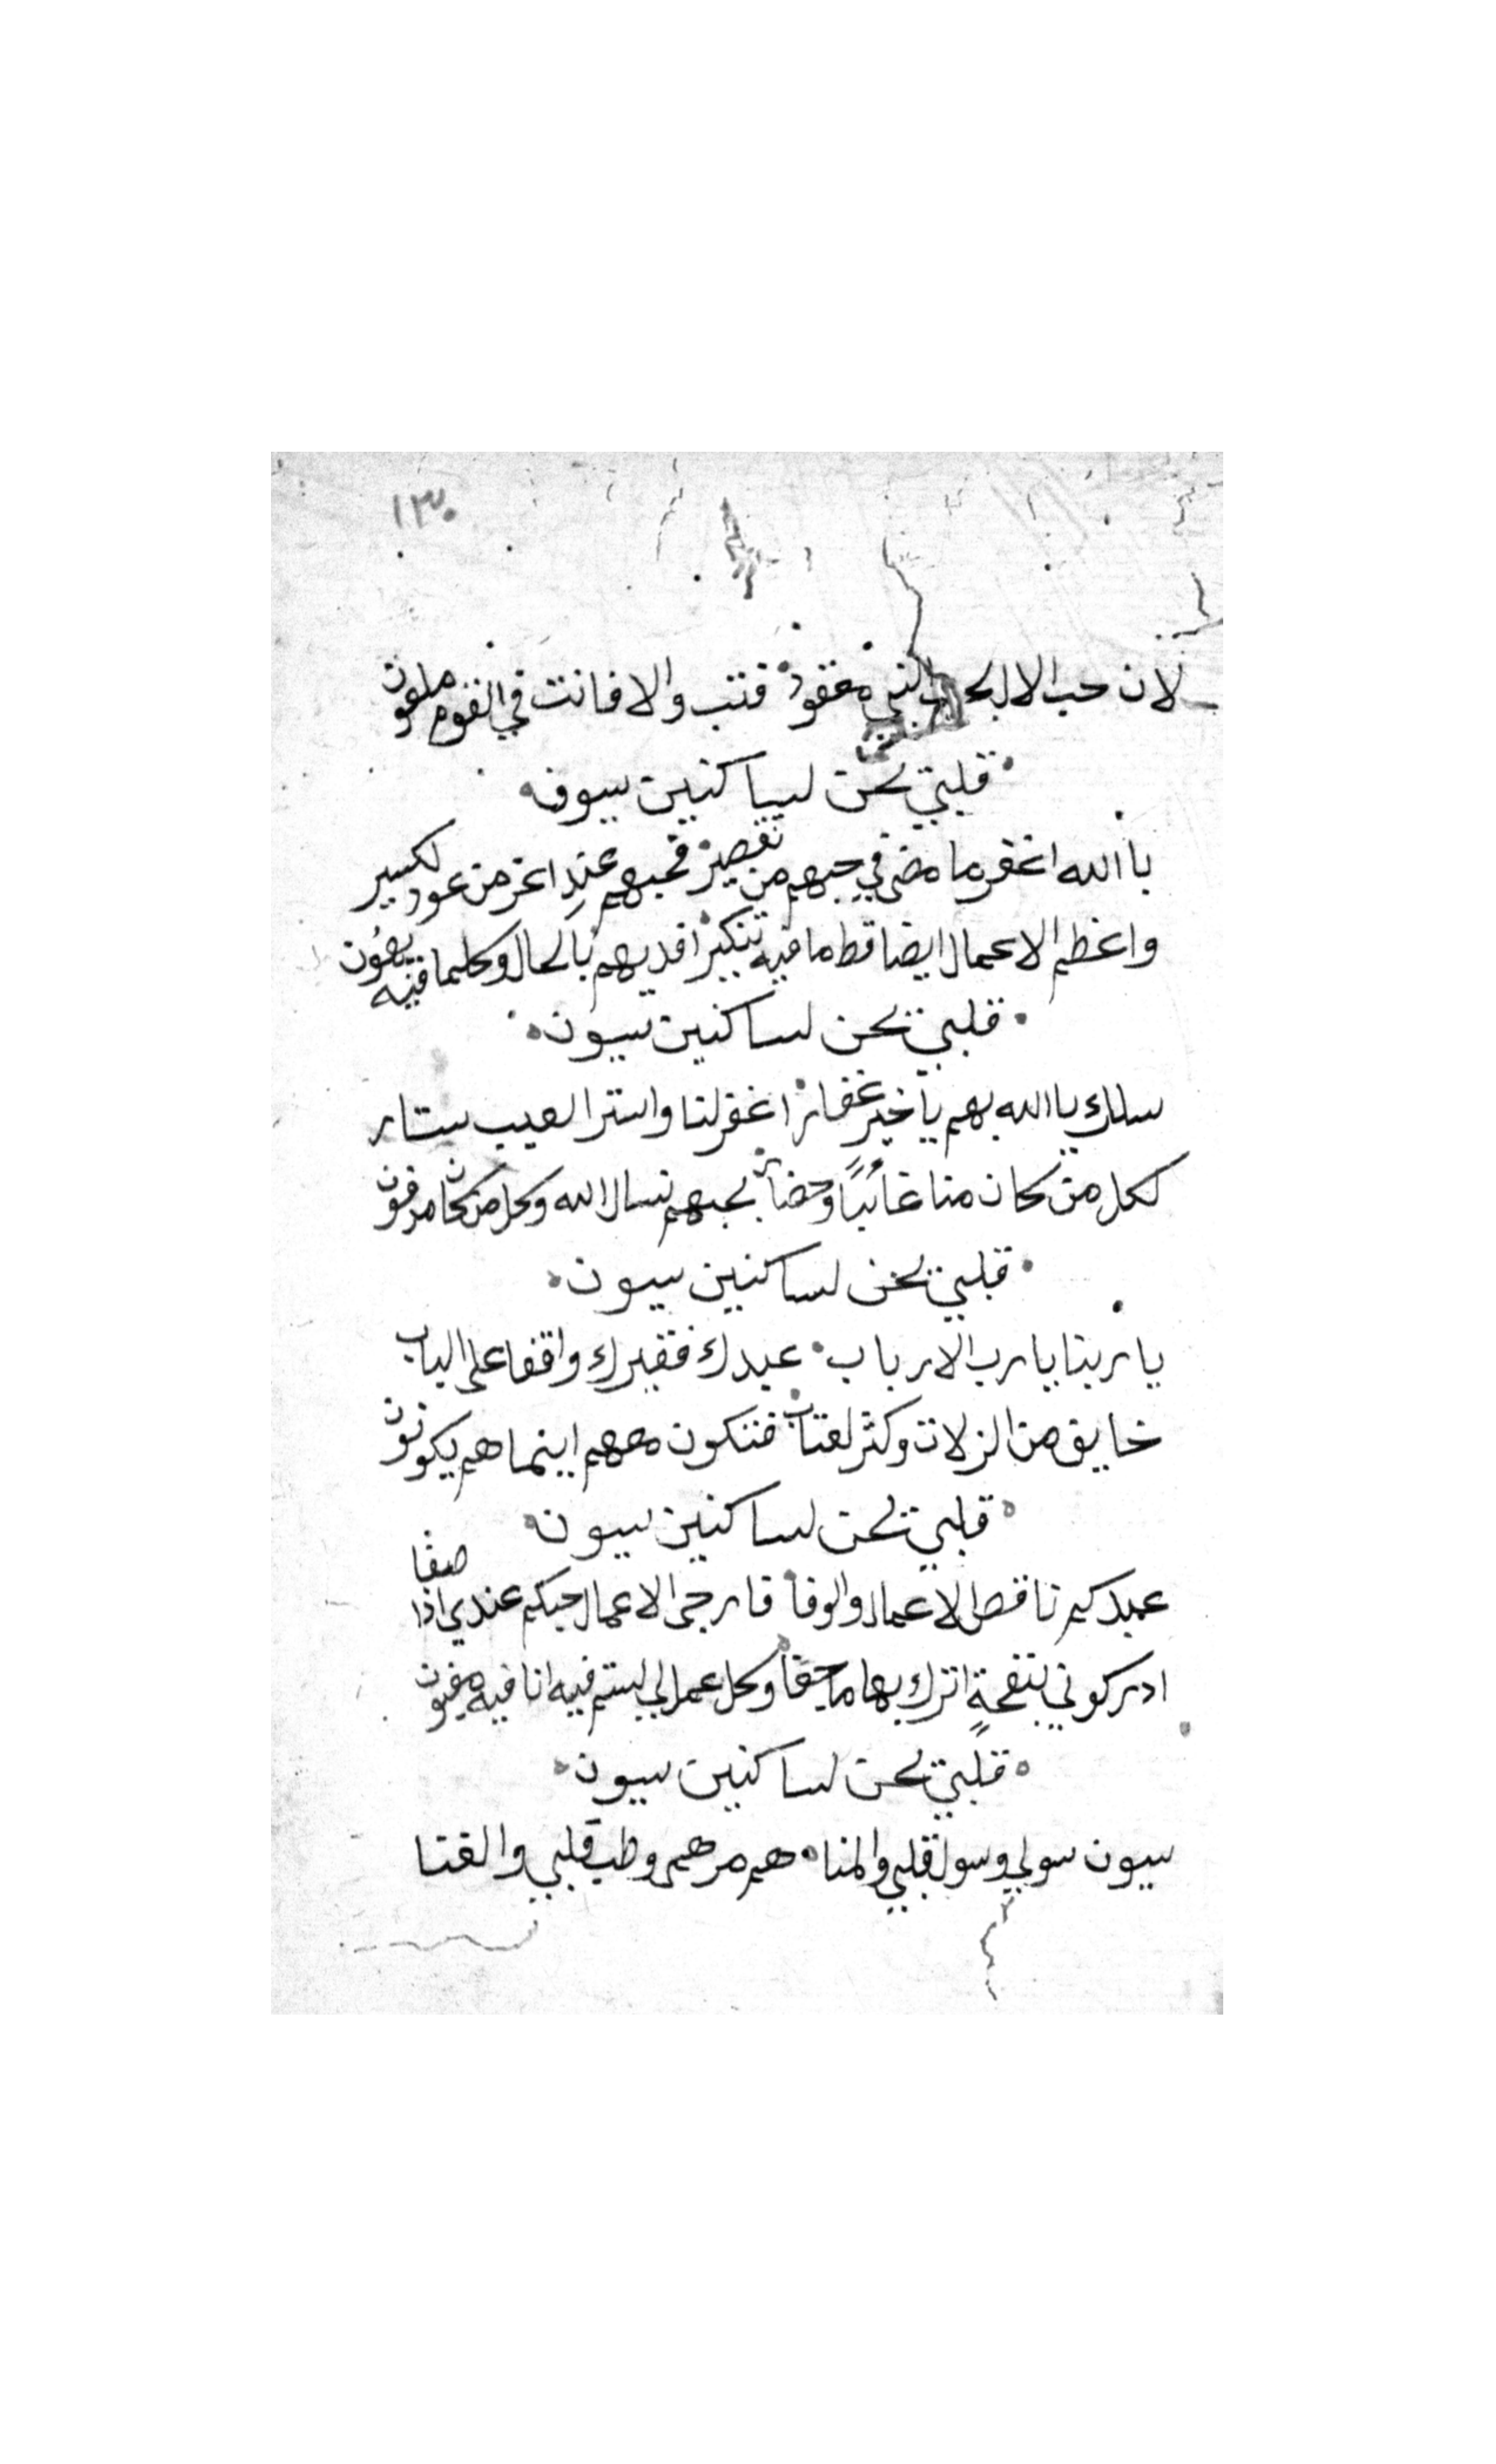 ١٣٠
لان حب الال النبي مفقود فتب والا فانت في القوم ملعون
قلبي يحن لساكنين سيون
يا الله اغفر ما مضى في حبهم من تقصير فحبهم عندِ اعز من عود لكسير
واعظم الاعمال ايضا قط ما فيه تنكير افديهم بالحال وكلما فيه يهون
قلبي يحن لساكنين سيون
سالك يا الله بهم يا خير غفار اغفر لنا واستر العيب ستار
لكل من كان منا غائبًا وحضار بحبهم نسال الله وكل من كان مرفون
قلبي يحن لساكنين سيون
يا ربنا يا رب الارباب عبدك فقيرك واقفا على الباب
خايف من الزلات وكثر لعتاب فنكون معهم اينما هم يكونون
قلبي يحن لساكنين سيون
عبدكم ناقص الاعمال والوفا فارجى الاعمال حبكم عندي اذا صفا
ادركوني بنفحةٍ اترك بها ما حقا وكل عمل لي لستم فيه انا فيه مغبون
قلبي يحن لساكنين سيون
سيون سولي وسول قلبي والمنا هم مرهمى وطب قلبي والقنا